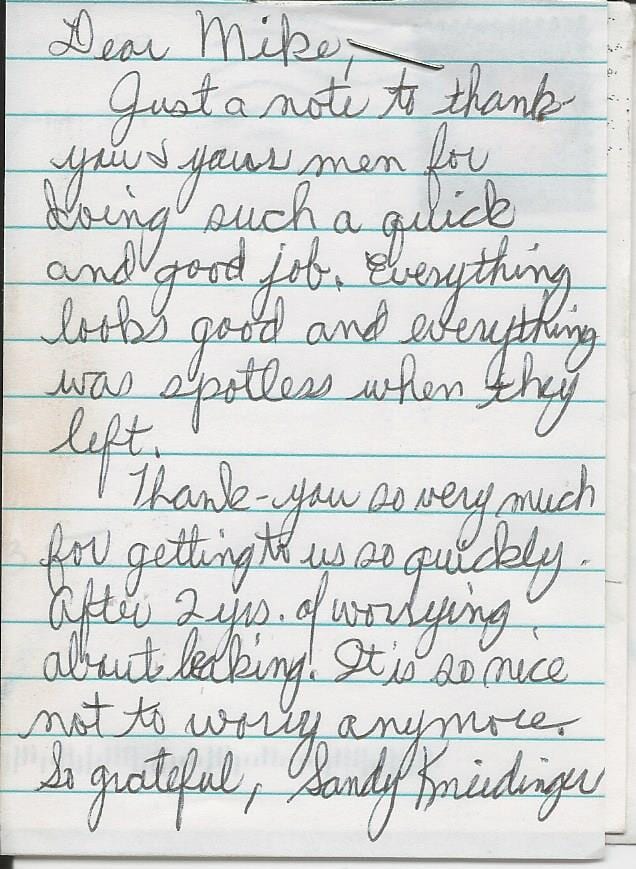 Dear Mike,
Just a note to thank-
you & yours men for
doing such a quick
and good job. Everything
looks good and everything
was spotless when they
left.
Thank-you so very much
for getting to us so quickly.
After 2 yrs. of worrying
about leaking. It is so nice
not to worry anymore.
So grateful, Sandy Kneidinger